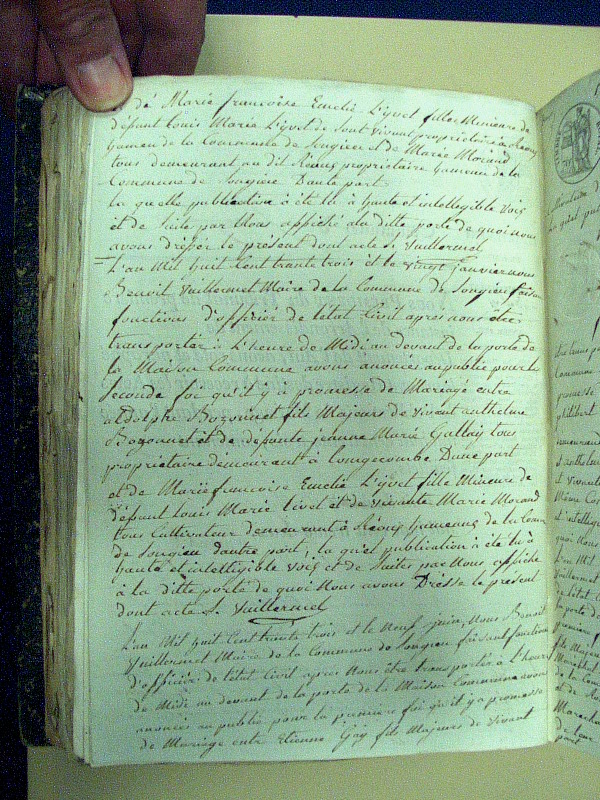 de Marie francoise Emelie Lyvet fille Mineure de
défunt Louis Marie Lyvet de Son Vivant propriétaire à
hameau de la Commune de Songieu et de Marie Morand
tous demeurant au dit propriétaire hameau de la
Commune de Songieu Dautre part
la quelle publication à été lu à haute et intelligible vois
et de Suite par Nous affiché au ditte porte de quoi nous
avons dressé le présent dont acte S. Vuillermet
L'an Mil huit Cent trante trois et le vingt janvier nous
Benoit Vuillermet Maire de la Commune de Songieu faisan
fonctions d'officier de létat Civil apres nous être
transporter à L'heure de Midi au devant de la porte de
la Maison Commune avons anoncés au publie pour la
Seconde foi qu'il y à promesse de Mariage entre
adolphe Bozonnet fils Majeurs de vivant anthelme
Bozonnet et de defunte jeanne Marie Gallay tous
propriétaire demeurant à Longecombe Dune part
et de Marie francoise Emelie Lyvet fille Mineure de
défunt Louis Marie Livet et de vivante Marie Morand
tous Cultivateur demeurant à hameaux de la Comm
de Songieu dautre part, la quel publication à été lu à
haute et intelligible vois et de Suites par Nous affiché
à la ditte porte de quoi Nous avons Dressé le présent
dont acte S. Vuillermet
L'an Mil huit Cent trante trois et le Neuf juin, Nous Benoit
Vuillermet Maire de la Commune de Songieu faisant fonctions
d'officier de létat Civil apres Nous être transporter à L'heure
de Midi au devant de la porte de la Maison Commune avons
anoncés au publie pour la premiere foi qu'il y à promesse
de Mariage entre Etienne Gay fils Majeurs de Vivant